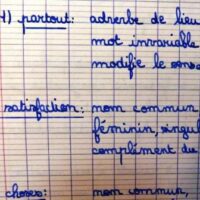 1) partout: adverbe de lieu
mot invariable
modifie le sens
satisfaction: nom commun
féminin, singul
complément du
choses: nom commun,